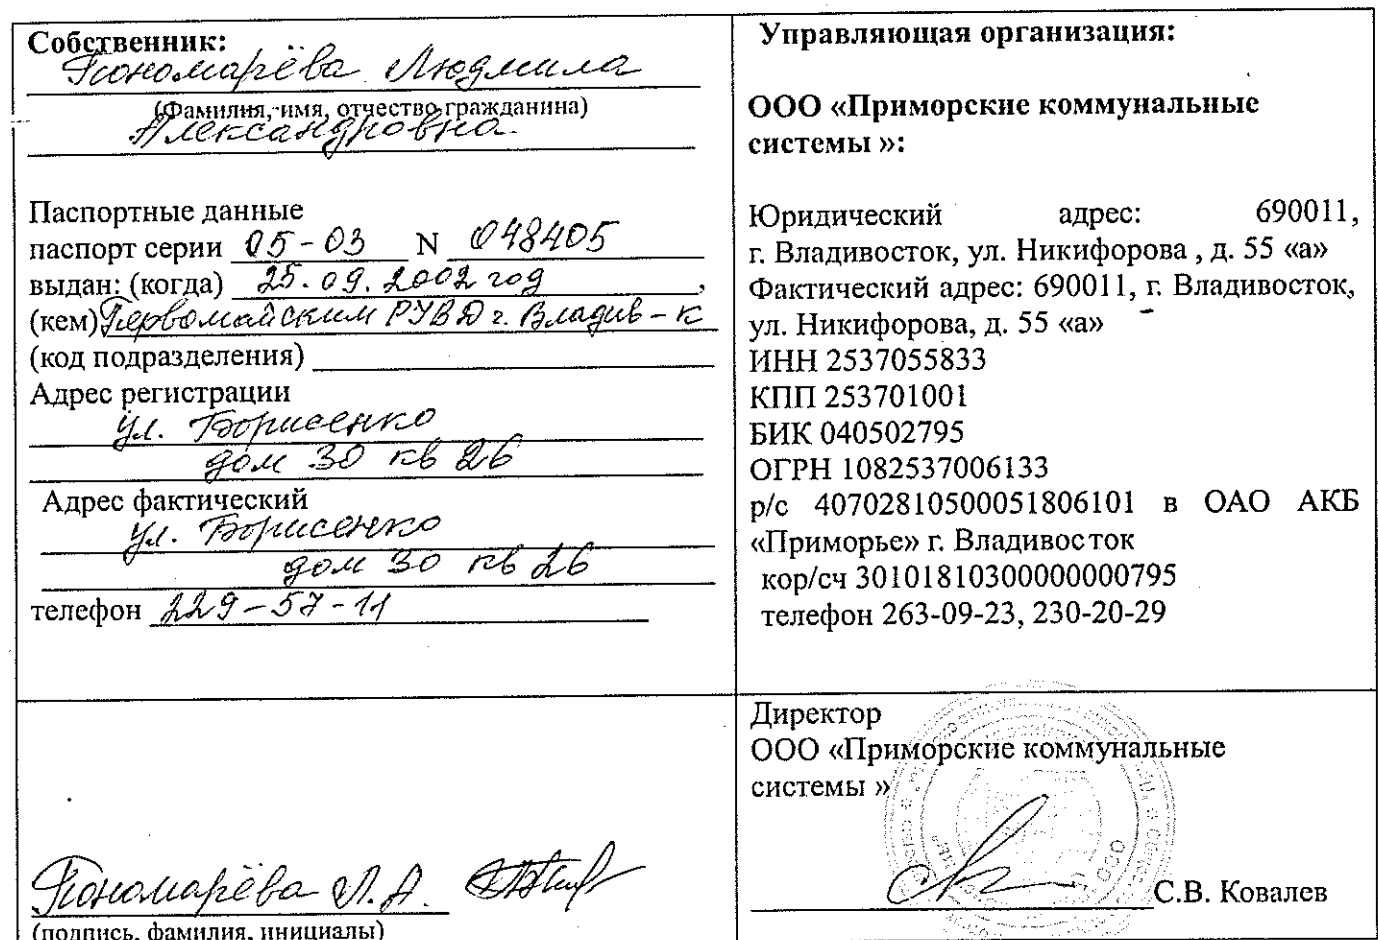 Собственник:
Пономарёва Людмила
(Фамилия, имя, отчество гражданина)
Александровна
Паспортные данные
паспорт серии 05-03 N 048405
выдан: (когда) 25.09.2002 год,
(кем) Первомайским РУВД г. Владив-к
(код подразделения)
Адрес регистрации
ул. Борисенко
дом 30 кв 26
Адрес фактический
ул. Борисенко
дом 30 кв 26
телефон 229-57-11
Управляющая организация:
ООО «Приморские коммунальные
системы »:
Юридический адрес: 690011,
г. Владивосток, ул. Никифорова , д. 55 «а»
Фактический адрес: 690011, г. Владивосток,
ул. Никифорова, д. 55 «а»
ИНН 2537055833
КПП 253701001
БИК 040502795
ОГРН 1082537006133
р/с 40702810500051806101 в ОАО АКБ
«Приморье» г. Владивосток
кор/сч 30101810300000000795
телефон 263-09-23, 230-20-29
Пономарёва Л.А.
(подпись, фамилия, инициалы)
Директор
ООО «Приморские коммунальные
системы »
С.В. Ковалев